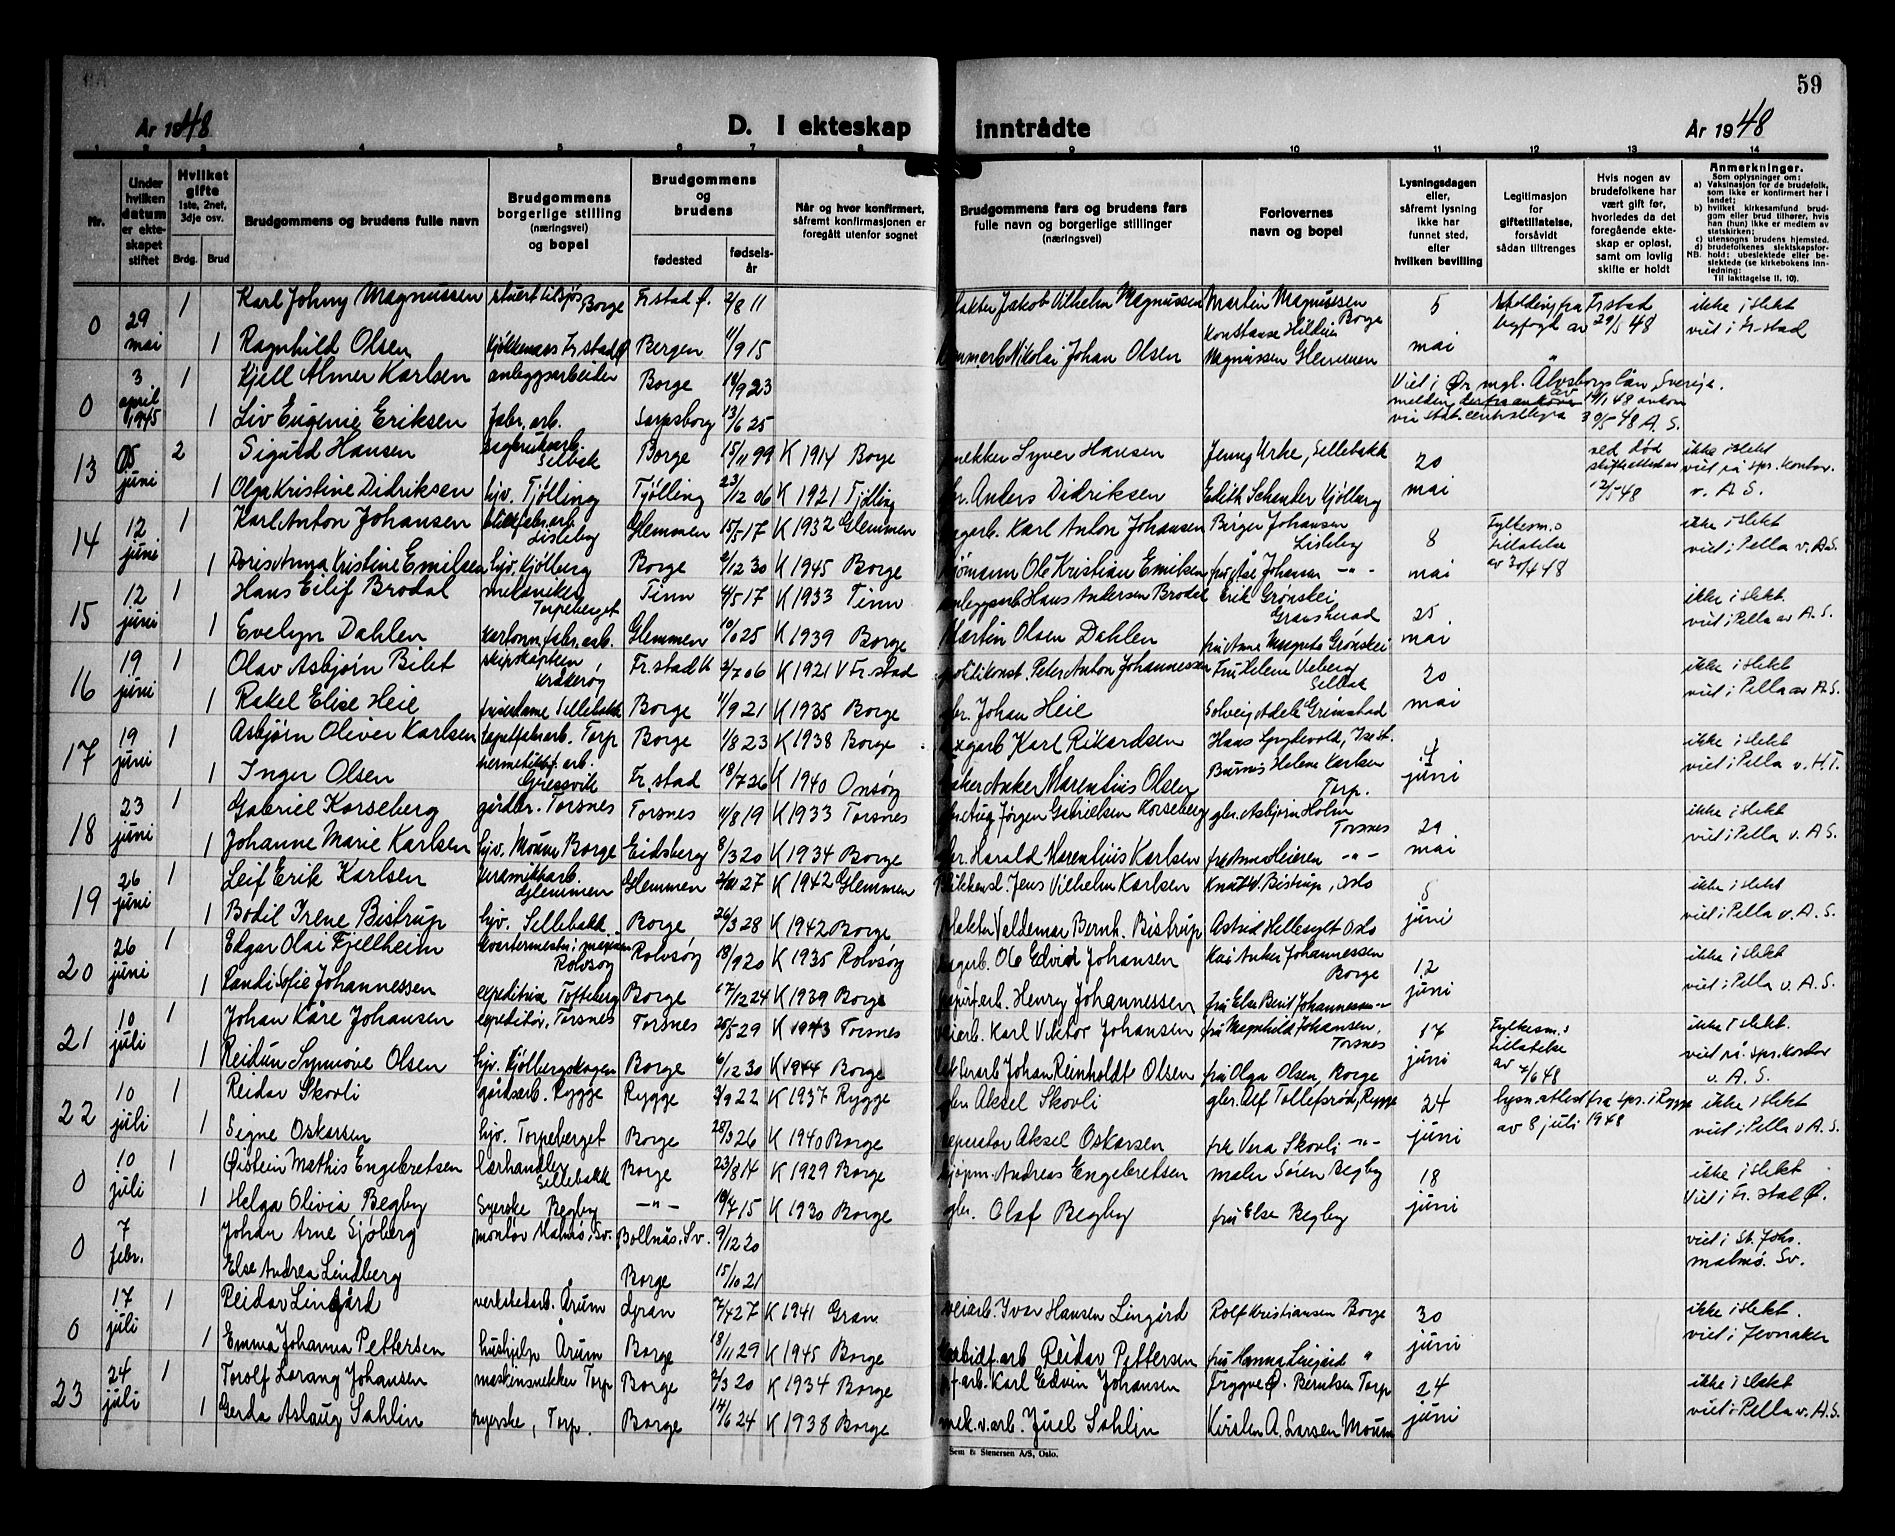 59
År 1948
D. I ekteskap inntrådte
År 1948
1 2 3 4 5 6 7 8 9 10 11 12 13 14
Nr.
Under hvilken datum er ekteskapet stiftet
Hvilket gifte 1ste, 2net, 3dje osv.
Brdg. Brud
Brudgommens og brudens fulle navn
Brudgommens borgerlige stilling (næringsvei) og bopel
Brudgommens og brudens
fødested
fødselsår
Når og hvor konfirmert, såfremt konfirmasjonen er foregått utenfor sognet
Brudgommens fars og brudens fars fulle navn og borgerlige stillinger (næringsvei)
Forlovernes navn og bopel
Lysningsdagen eller, såfremt lysning ikke har funnet sted, efter hvilken bevilling
Legitimasjon for giftetillatelse, forsåvidt sådan tiltrenges
Hvis nogen av brudefolkene har vært gift før, hvorledes da det foregående ekteskap er opløst, samt om lovlig skifte er holdt
Anmerkninger.
Som oplysninger om:
a) Vaksinasjon for de brudefolk, som ikke er konfirmert her i landet;
b) hvilket kirkesamfund brudgom eller brud tilhører, hvis han (hun) ikke er medlem av statskirken;
c) utensogns brudens hjemsted.
d) brudefolkenes slektskapsforhold: ubeslektede eller beslektede (se kirkebokens innledning:
NB.
Til iakttagelse II. 10).
0 29 mai 1 Karl Johny Magnussen Borge Fr.stad Ø. 2/8 11 Jakob Vilhelm Magnussen Martin Magnussen Borge 5 mai Fr.stad 29/5 48 ikke i slekt
1 Ragnhild Olsen Fr.stad Bergen 11/9 15 Nikolai Johan Olsen Konstanse Hildein Magnussen Glemmen viet i Fr.stad
0 3 april 1945 1 Kjell Almer Karlsen anleggsarbeider Borge 19/9 23 Viet i Ør. mgl. Älvsborgs län, Sverige.
1 Liv Eugenie Eriksen fabr.arb. Sarpsborg 13/6 25
13 5 juni 2 Sigurd Hansen Sellbak Borge 15/11 99 K 1914 Borge Syver Hansen Jenny Urke, Sellebakk 20 mai ved død ikke i slekt
1 Olga Kristine Didriksen hjv. Tjølling Tjølling 23/12 06 K 1921 Tjølling Anders Didriksen Edith Schander Kjølberg 12/5 48 viet på spr. kontor v. A. S.
14 12 juni 1 Karl Anton Johansen Lisleby Glemmen 15/5 17 K 1932 Glemmen Karl Anton Johansen Birger Johansen Lisleby 8 mai Fylkesm.s tillatelse av 30/4 48 ikke i slekt
1 Doris Anna Kristine Emilsen hjv. Kjølberg Borge 2/12 30 K 1945 Borge Ole Kristian Emilsen fru Åse Johansen -"- viet i Pella v. A.S.
15 12 juni 1 Hans Eilif Brodal mekaniker Torpeberget Tinn 4/5 17 K 1933 Tinn Hans Andersen Brodal Erik Grønskei Gransherad 25 mai ikke i slekt
1 Evelyn Dahlen kartonnfabr.arb. Glemmen 10/6 25 K 1939 Borge Martin Olsen Dahlen fru Anne Magnete Grønskei viet i Pella av A. S.
16 19 juni 1 Olav Asbjørn Bilet skipskaptein Kråkerøy Fr.stad V 3/7 06 K 1921 V Fr.stad politikonst. Peter Anton Johannessen Fru Helene Veberg Sellbak 20 mai ikke i slekt
1 Rakel Elise Heie frisørdame Sellebakk Borge 11/9 21 K 1935 Borge gbr. Johan Heie Solveig Adele Grimstad viet i Pella av A. S.
17 19 juni 1 Asbjørn Oliver Karlsen tapetfabrarb. Torp Borge 1/8 23 K 1938 Borge Karl Rikardsen Hans 4 juni ikke i slekt
1 Inger Olsen hermetikkf. arb. Gressvik Fr.stad 18/7 26 K 1940 Onsøy Anker Marentius Olsen Helene Karlsen Torp. viet i Pella v. H.T.
18 23 juni 1 Gabriel Korseberg gårdbr. Torsnes Torsnes 11/8 19 K 1933 Torsnes Jørgen Gabrielsen Korseberg gbr. Asbjørn Holm Torsnes 29 mai ikke i slekt
1 Johanne Marie Karlsen hjv. Moum Borge Eidsberg 8/3 20 K 1934 Borge gbr. Harald Marentius Karlsen frk Anna Heieren -"- viet i Pella v. A. S.
19 26 juni 1 Leif Erik Karlsen keramikkarb. Glemmen Glemmen 27 K 1942 Glemmen Jens Vilhelm Karlsen Knut W. Bistrup, Oslo 5 juni ikke i slekt
1 Bodil Irene Bistrup hjv. Sellebakk Borge 26/3 28 K 1942 Borge slakter Valdemar Bernh. Bistrup Astrid Hellesylt Oslo viet i Pella v. A. S.
20 26 juni 1 Edgar Olai Fjellheim kvartermester i marinen Rolvsøy Rolvsøy 18/9 20 K 1935 Rolvsøy Ole Edvin Johansen Kai Anker Johannessen Borge 12 juni ikke i slekt
1 Randi Sofie Johannessen expeditrise Tofteberg Borge 17/12 24 K 1939 Borge Henry Johannessen fru Else Berit Johannessen -"- viet i Pella v. A. S.
21 10 juli 1 Johan Kåre Johansen expeditør, Torsnes Torsnes 25/5 29 K 1943 Torsnes Karl Viktor Johansen fru Magnhild Johansen, Torsnes 17 juni Fylkesm.s tillatelse av 4/6 48 ikke i slekt.
1 Reidun Synnøve Olsen hjv. Kjølbergskogen Borge 6/12 30 K 1944 Borge Johan Reinholdt Olsen fru Olga Olsen Borge viet på spr. kontor v. A. S.
22 10 juli 1 Reidar Skovli gårdsarb. Rygge Rygge 3/9 22 K 1937 Rygge gbr. Aksel Skovli gbr. Alf Tollefsrød, Rygge 24 juni lysn.attest fra spr. i Rygge av 8 juli 1948 ikke i slekt
1 Signe Oskarsen hjv. Torpeberget Borge 25/3 26 K 1940 Borge reperatør Aksel Oskarsen frk Vera Skovli -"- viet i Pella v A. S.
0 10 juli 1 Øistein Mathis Engebretsen lærhandler Sellebakk Borge 23/8 14 K 1929 Borge Andreas Engebretsen maler Søren Begby 18 juni ikke i slekt
1 Helga Olivia Begby Syerske Begby -"- 19/4 15 K 1930 Borge gbr. Olaf Begby fru Else Begby Viet i Fr. stad Ø.
0 7 febr. Johan Arne Sjöberg montør Malmö, Sv. Bollnäs. Sv. 9/12 20 viet i St. Johs.
Else Andrea Lindberg Borge 15/10 21 Malmö. Sv.
0 17 juli 1 Reidar Lingård verkstedarb. Årum Gran 7/4 27 K 1941 Gran veiarb. Ivar Hansen Lingård Rolf Kristiansen Borge 30 juni ikke i slekt.
1 Emma Johanna Pettersen hushjelp Årum Borge 18/11 29 K 1945 Borge Reidar Pettersen fru Hanna Lingård " viet i Jevnaker
23 24 juli 1 Torolf Lorang Johansen maskinsnekker Torp Borge 2/3 20 K 1934 Borge Karl Edvin Johansen Tryggve Ø. Berntsen Torp 24 juni ikke i slekt
1 Gerda Aslaug Sahlin syerske, Torp. Borge 14/6 24 K 1938 Borge mek.v.arb. Juel Sahlin Kirsten A. Larsen Moum viet i Pella v. A. S.
Sem & Stenersen A/S, Oslo.